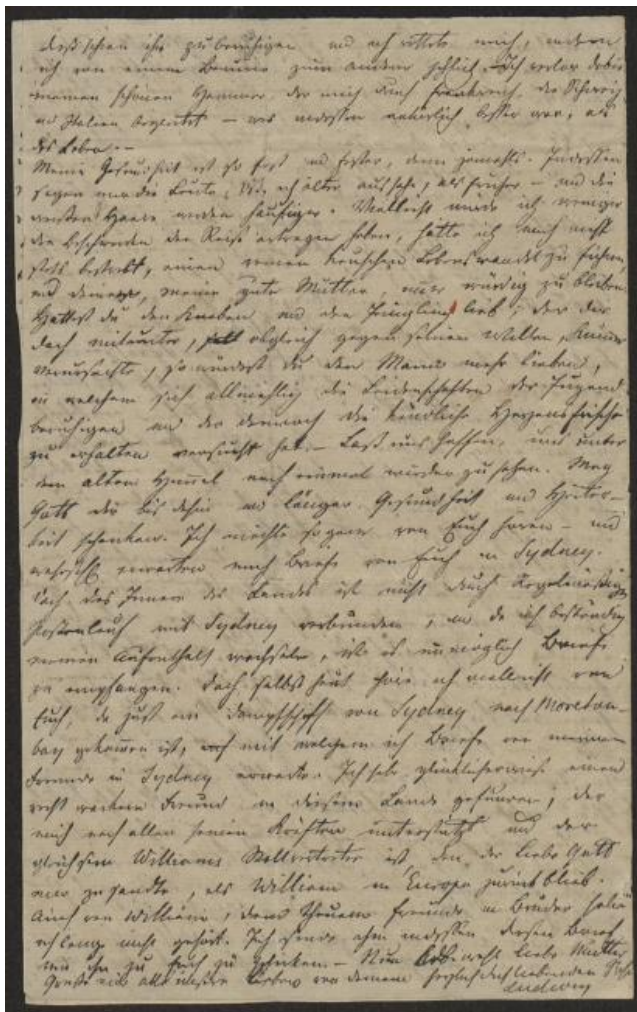 dieß schien ihn zu beruhigen und ich rettete mich, indem
ich von einem Baume zum andern schlich. Ich verlor dabei
meinen schönen Hammer, der mich durch Frankreich, die Schweiz
und Italien begleitet – was indessen natürlich besser war, als
das Leben. –
Meine Gesundheit ist so fest und fester, denn jemahls. Indessen
sagen mir die Leute, daß ich älter aussehe, als früher – und die
weißen Haare werden häufiger. Vielleicht würde ich weniger
die Beschwerden der Reise ertragen haben, hätte ich mich nicht
stets bestrebt, einen reinen keuschen Lebenswandel zu führen,
und deiner, meine gute Mutter, würdig zu bleiben.
Hattest du den Knaben und den Jüngling lieb, der dir
doch mitunter, obgleich gegen seinen Willen, Kummer
verursachte, so würdest du den Mann mehr lieben,
in welchem sich allmählig die Leidenschaften der Jugend
beruhigen und der dennoch die kindliche Herzensfrische
zu erhalten versucht hat. – Laß uns hoffen, uns unter
dem alten Himmel noch einmal wieder zu sehen. Mag
Gott dir bis dahin und länger Gesundheit und Heiter-
keit schenken. Ich möchte so gern von Euch hören – und
erwarten mich Briefe von Euch in Sydney.
Doch das Innere des Landes ist nicht durch regelmäßigen
Postenlauf mit Sydney verbunden, und da ich beständig
meinen Aufenthalt wechsele, ist es unmöglich Briefe
zu empfangen. Doch selbst heut höre ich vielleicht von
Euch, da just ein Dampfschiff von Sydney nach Moreton-
bay gekommen ist, mit welchem ich Briefe von meinem
Freunde in Sydney erwarte. Ich habe glücklicherweise einen
recht wackern Freund in diesem Lande gefunden, der
mich nach allen seinen Kräften unterstützt und der
gleichsam Williams Stellvertreter ist, den der liebe Gott
mir zusandte, als William in Europa zurückblieb.
Auch von William, dem theuern Freunde und Bruder habe
ich lang nicht gehört. Ich sende ihm indessen diesen Brief
um ihn zu Euch zu schicken. – Nun lebe wohl liebe Mutter
Grüße alle von deinem herzlich dich liebenden Sohn
Ludwig